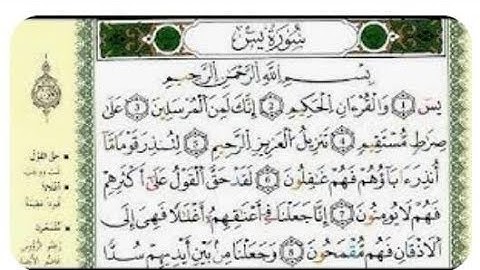 سُورَةُ يسٓ
بِسْمِ اللَّهِ الرَّحْمَٰنِ الرَّحِيمِ
يسٓ ١ وَالْقُرْءَانِ الْحَكِيمِ ٢ إِنَّكَ لَمِنَ الْمُرْسَلِينَ ٣ عَلَىٰ
صِرَاطٍ مُسْتَقِيمٍ ٤ تَنزِيلَ الْعَزِيزِ الرَّحِيمِ ٥ لِتُنذِرَ قَوْمًا مَّا
أُنذِرَ ءَابَآؤُهُمْ فَهُمْ غَٰفِلُونَ ٦ لَقَدْ حَقَّ الْقَوْلُ عَلَىٰٓ أَكْثَرِهِمْ
فَهُمْ لَا يُؤْمِنُونَ ٧ إِنَّا جَعَلْنَا فِىٓ أَعْنَٰقِهِمْ أَغْلَٰلًا فَهِىَ إِلَى
الْأَذْقَانِ فَهُم مُّقْمَحُونَ ٨ وَجَعَلْنَا مِنۢ بَيْنِ أَيْدِيهِمْ سَدًّا
حَقَّ الْقَوْلُ